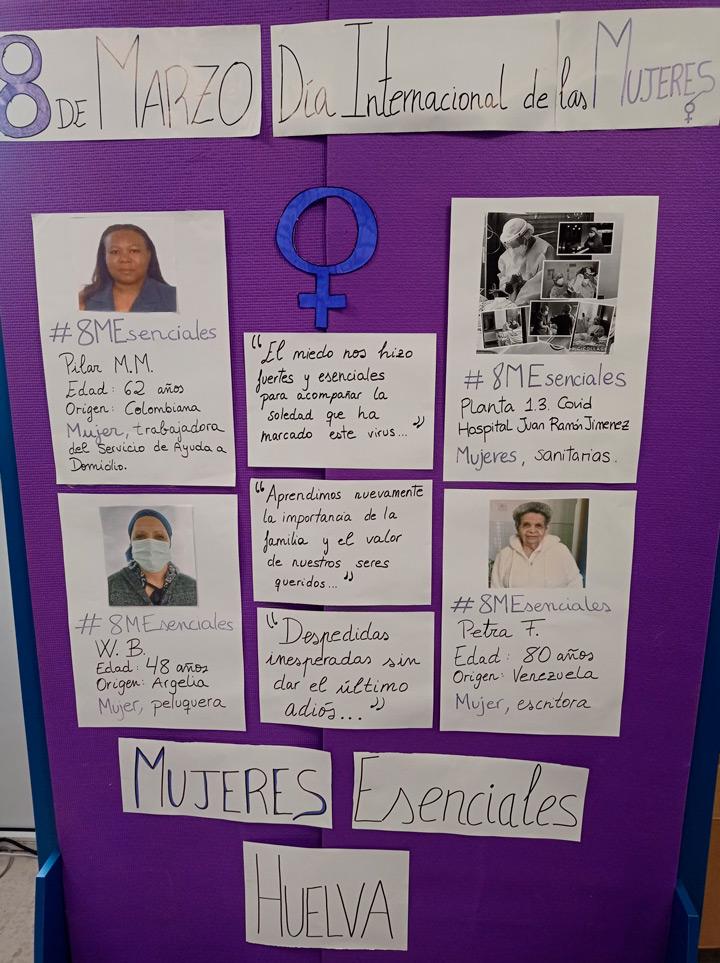 8 DE MARZO Día Internacional de las MUJERES
#8MEsenciales
Pilar M.M.
Edad: 62 años
Origen: Colombiana
Mujer, trabajadora
del Servicio de Ayuda a
Domicilio.
"El miedo nos hizo
fuertes y esenciales
para acompañar la
soledad que ha
marcado este virus..."
#8MEsenciales
Planta 1.3. Covid
Hospital Juan Ramón Jimenez
Mujeres, sanitarias.
#8MEsenciales
W. B.
Edad: 48 años
Origen: Argelia
Mujer, peluquera
"Aprendimos nuevamente
la importancia de la
familia y el valor
de nuestros seres
queridos..."
"Despedidas
inesperadas sin
dar el último
adiós..."
#8MEsenciales
Petra F.
Edad: 80 años
Origen: Venezuela
Mujer, escritora
MUJERES Esenciales
HUELVA